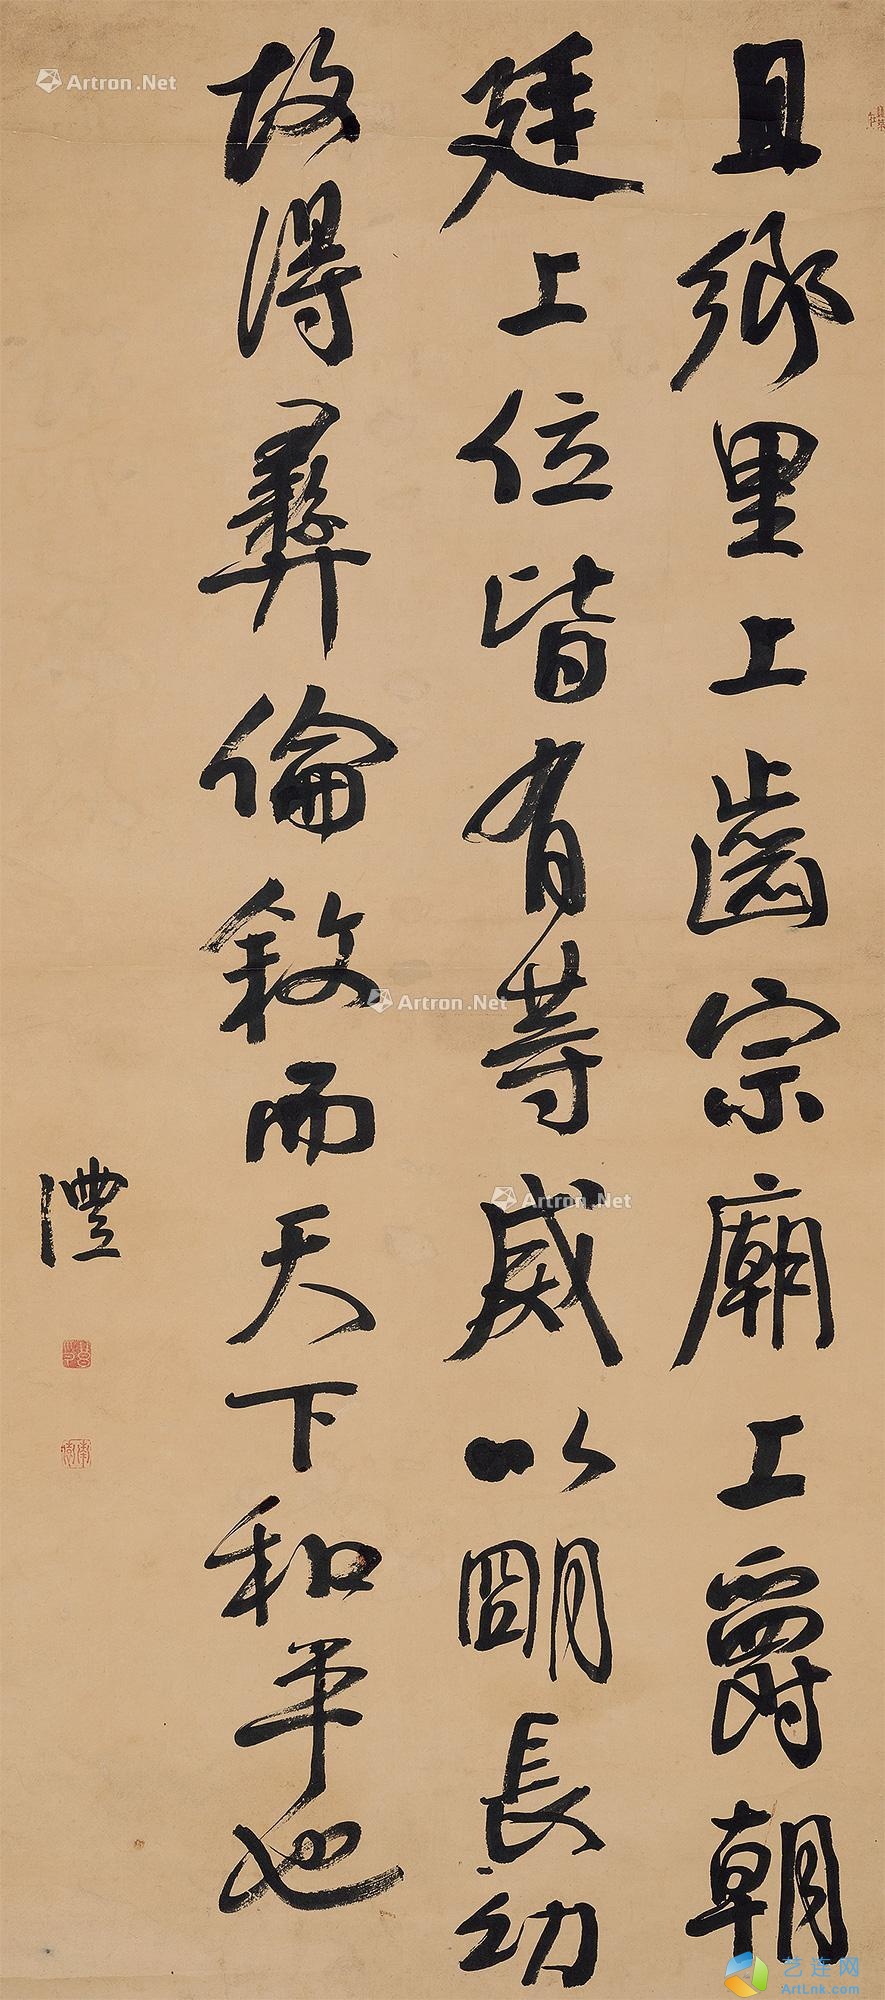 且鄉里上齒宗廟上爵朝
廷上位皆有等威以明長幼
故得彝倫敘而天下和平也
澧
Artron.Net
Artron.Net
Artron.Net
艺连网
ArtLnk.com